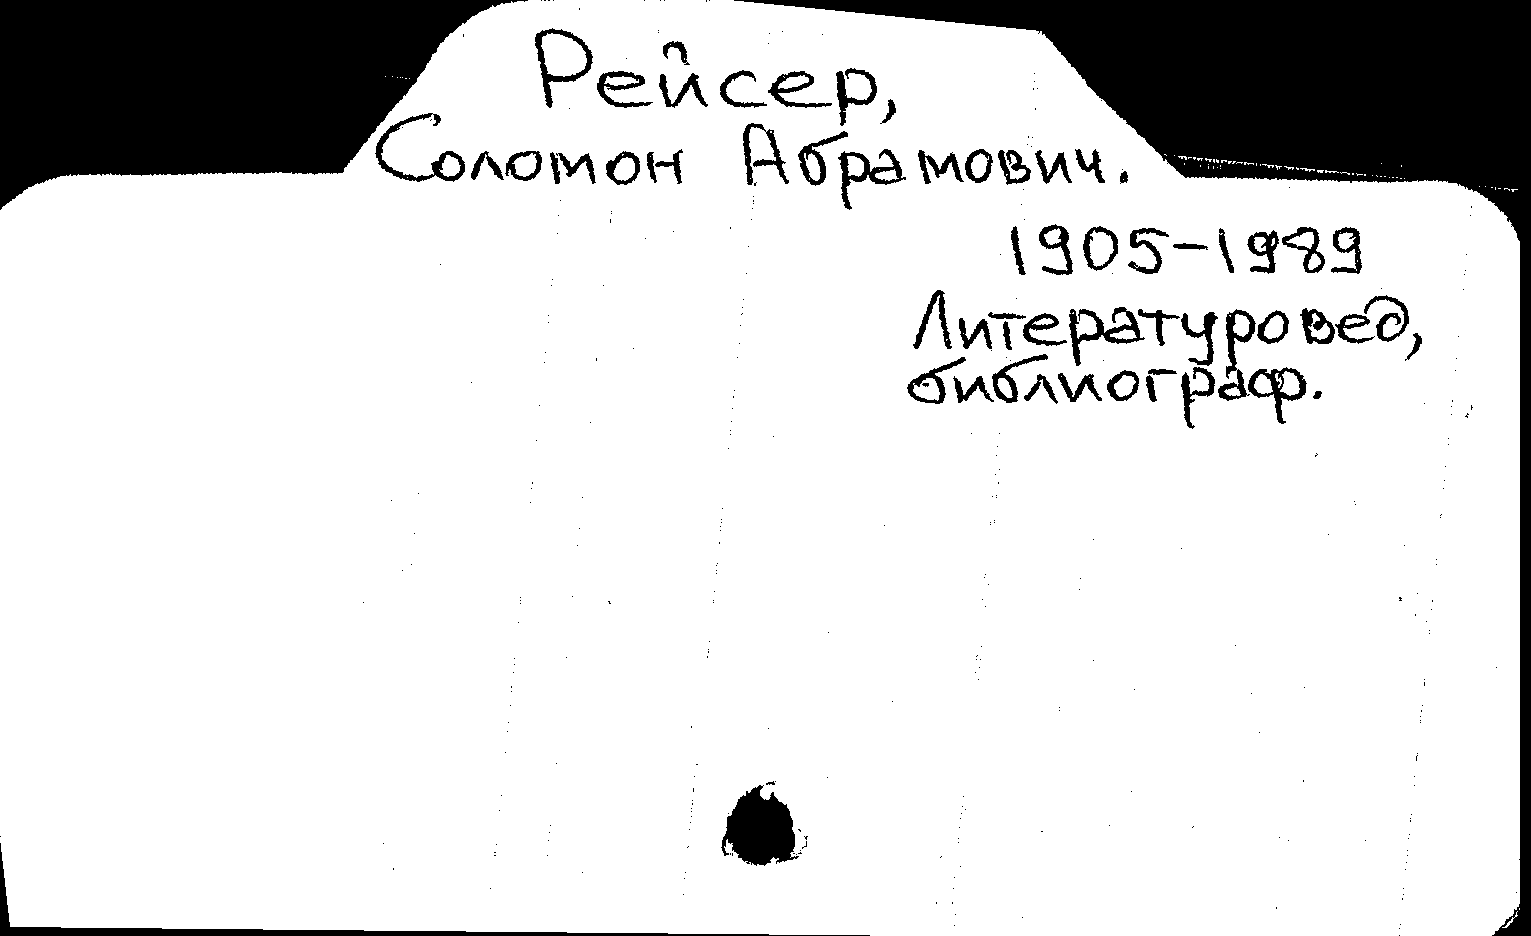 Рейсер,
Соломон Абрамович.
1905-1989
Литературовед,
библиограф.